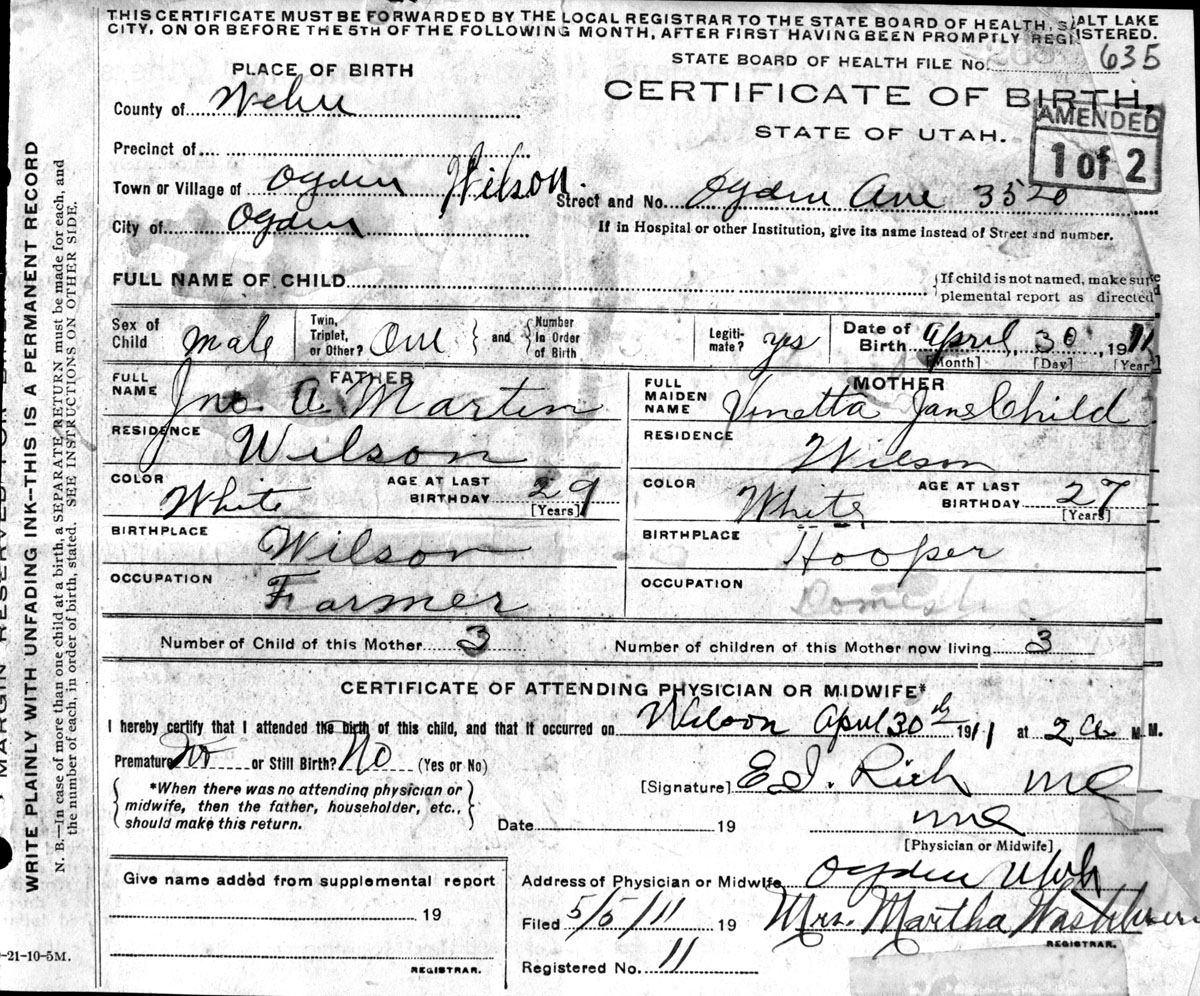 THIS CERTIFICATE MUST BE FORWARDED BY THE LOCAL REGISTRAR TO THE STATE BOARD OF HEALTH, SALT LAKE
CITY, ON OR BEFORE THE 5TH OF THE FOLLOWING MONTH, AFTER FIRST HAVING BEEN PROMPTLY REGISTERED.
STATE BOARD OF HEALTH FILE No. 635
PLACE OF BIRTH
CERTIFICATE OF BIRTH,
STATE OF UTAH.
AMENDED
1 of 2
County of Weber
Precinct of
Town or Village of Ogden Wilson
Street and No. Ogden Ave 3520
City of Ogden
If in Hospital or other Institution, give its name instead of Street and number.
FULL NAME OF CHILD
{If child is not named, make sup
plemental report as directed
Sex of Child male
Twin, Triplet, or Other? One } and { Number in Order of Birth
Legitimate? yes
Date of Birth April, 30, 1911
[Month] [Day] [Year]
FATHER
FULL NAME Jno. A. Martin
RESIDENCE Wilson
COLOR White
AGE AT LAST BIRTHDAY 29
[Years]
BIRTHPLACE Wilson
OCCUPATION Farmer
MOTHER
FULL MAIDEN NAME Vinetta Jane Child
RESIDENCE Wilson
COLOR White
AGE AT LAST BIRTHDAY 27
[Years]
BIRTHPLACE Hooper
OCCUPATION Domestic
Number of Child of this Mother 3
Number of children of this Mother now living 3
CERTIFICATE OF ATTENDING PHYSICIAN OR MIDWIFE*
I hereby certify that I attended the birth of this child, and that it occurred on Wilson April 30th 1911 at 2 a M.
Premature No or Still Birth? No (Yes or No)
*When there was no attending physician or
midwife, then the father, householder, etc.,
should make this return.
[Signature] E. I. Rich md
Date 19
md
[Physician or Midwife]
Give name added from supplemental report
19
REGISTRAR.
Address of Physician or Midwife Ogden Utah
Filed 5/5/11 19
Mrs. Martha Washburn
REGISTRAR.
Registered No. 11
-21-10-5M.
WRITE PLAINLY WITH UNFADING INK--THIS IS A PERMANENT RECORD
N. B.—In case of more than one child at a birth, a SEPARATE RETURN must be made for each, and
the number of each, in order of birth, stated. SEE INSTRUCTIONS ON OTHER SIDE.